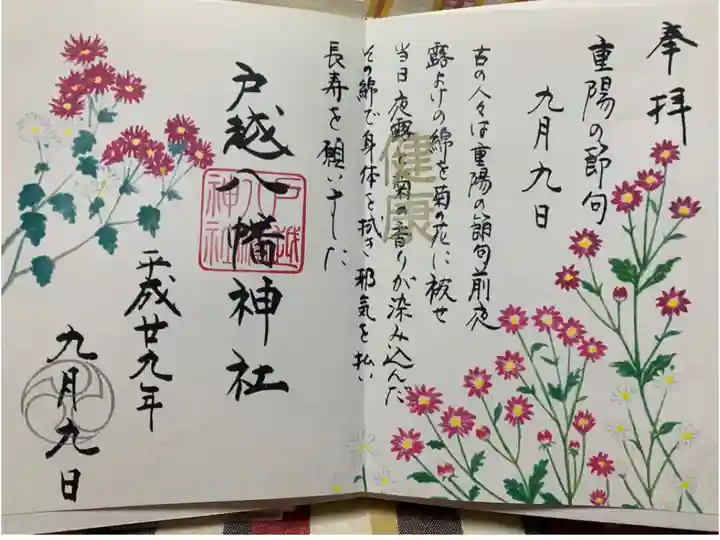 奉拝
重陽の節句
九月九日
古の人々は重陽の節句前夜
露よけの綿を菊の花に被せ
当日夜露と菊の香りが染み込んだ
その綿で身体を拭き邪気を払い
長寿を願いました
健康
戸越八幡神社
戸越八幡神社
平成廿九年
九月九日